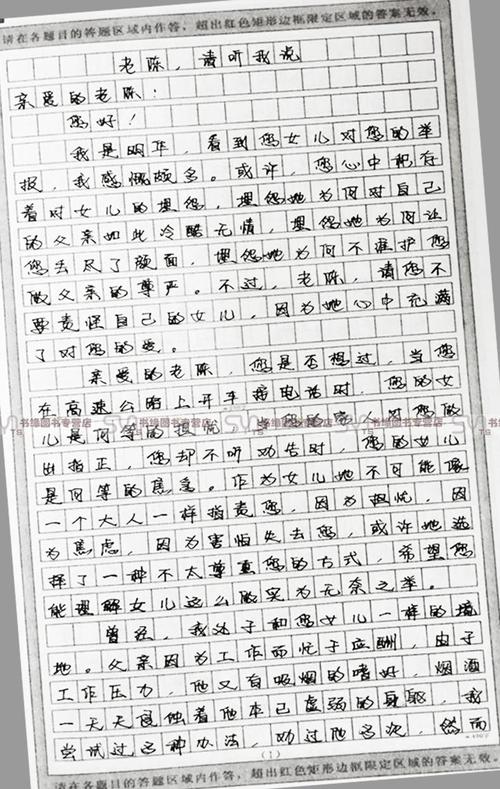 请在各题目的答题区域内作答，超出红色矩形边框限定区域的答案无效。
老陈，请听我说
亲爱的老陈：
您好！
我是明华，看到您女儿对您的举
报，我感慨颇多。或许，您心中积存
着对女儿的埋怨，埋怨她为何对自己
的父亲如此冷酷无情，埋怨她为何让
您丢尽了颜面，埋怨她为何不维护您
做父亲的尊严。不过，老陈，请您不
要责怪自己的女儿，因为她心中充满
了对您的爱。
亲爱的老陈，您是否想过，当您
在高速公路上开车接电话时，您的女
儿是何等的担忧，当您的家人对您做
出指正，您却不听劝告时，您的女儿
是何等的焦急。作为女儿她不可能像
一个大人一样指责您，因为担忧，因
为焦虑，因为害怕失去您，或许她选
择了一种不太尊重您的方式，希望您
能理解女儿这么做实为无奈之举。
曾经，我处于和您女儿一样的境
地。父亲因为工作而忙于应酬，由于
工作压力，他又有吸烟的嗜好，烟酒
一天天侵蚀着他本已虚弱的身躯，我
尝试过各种办法，劝过他多次，然而
(1)
请在各题目的答题区域内作答，超出红色矩形边框限定区域的答案无效。
书缘图书专营店
书缘图书专营店